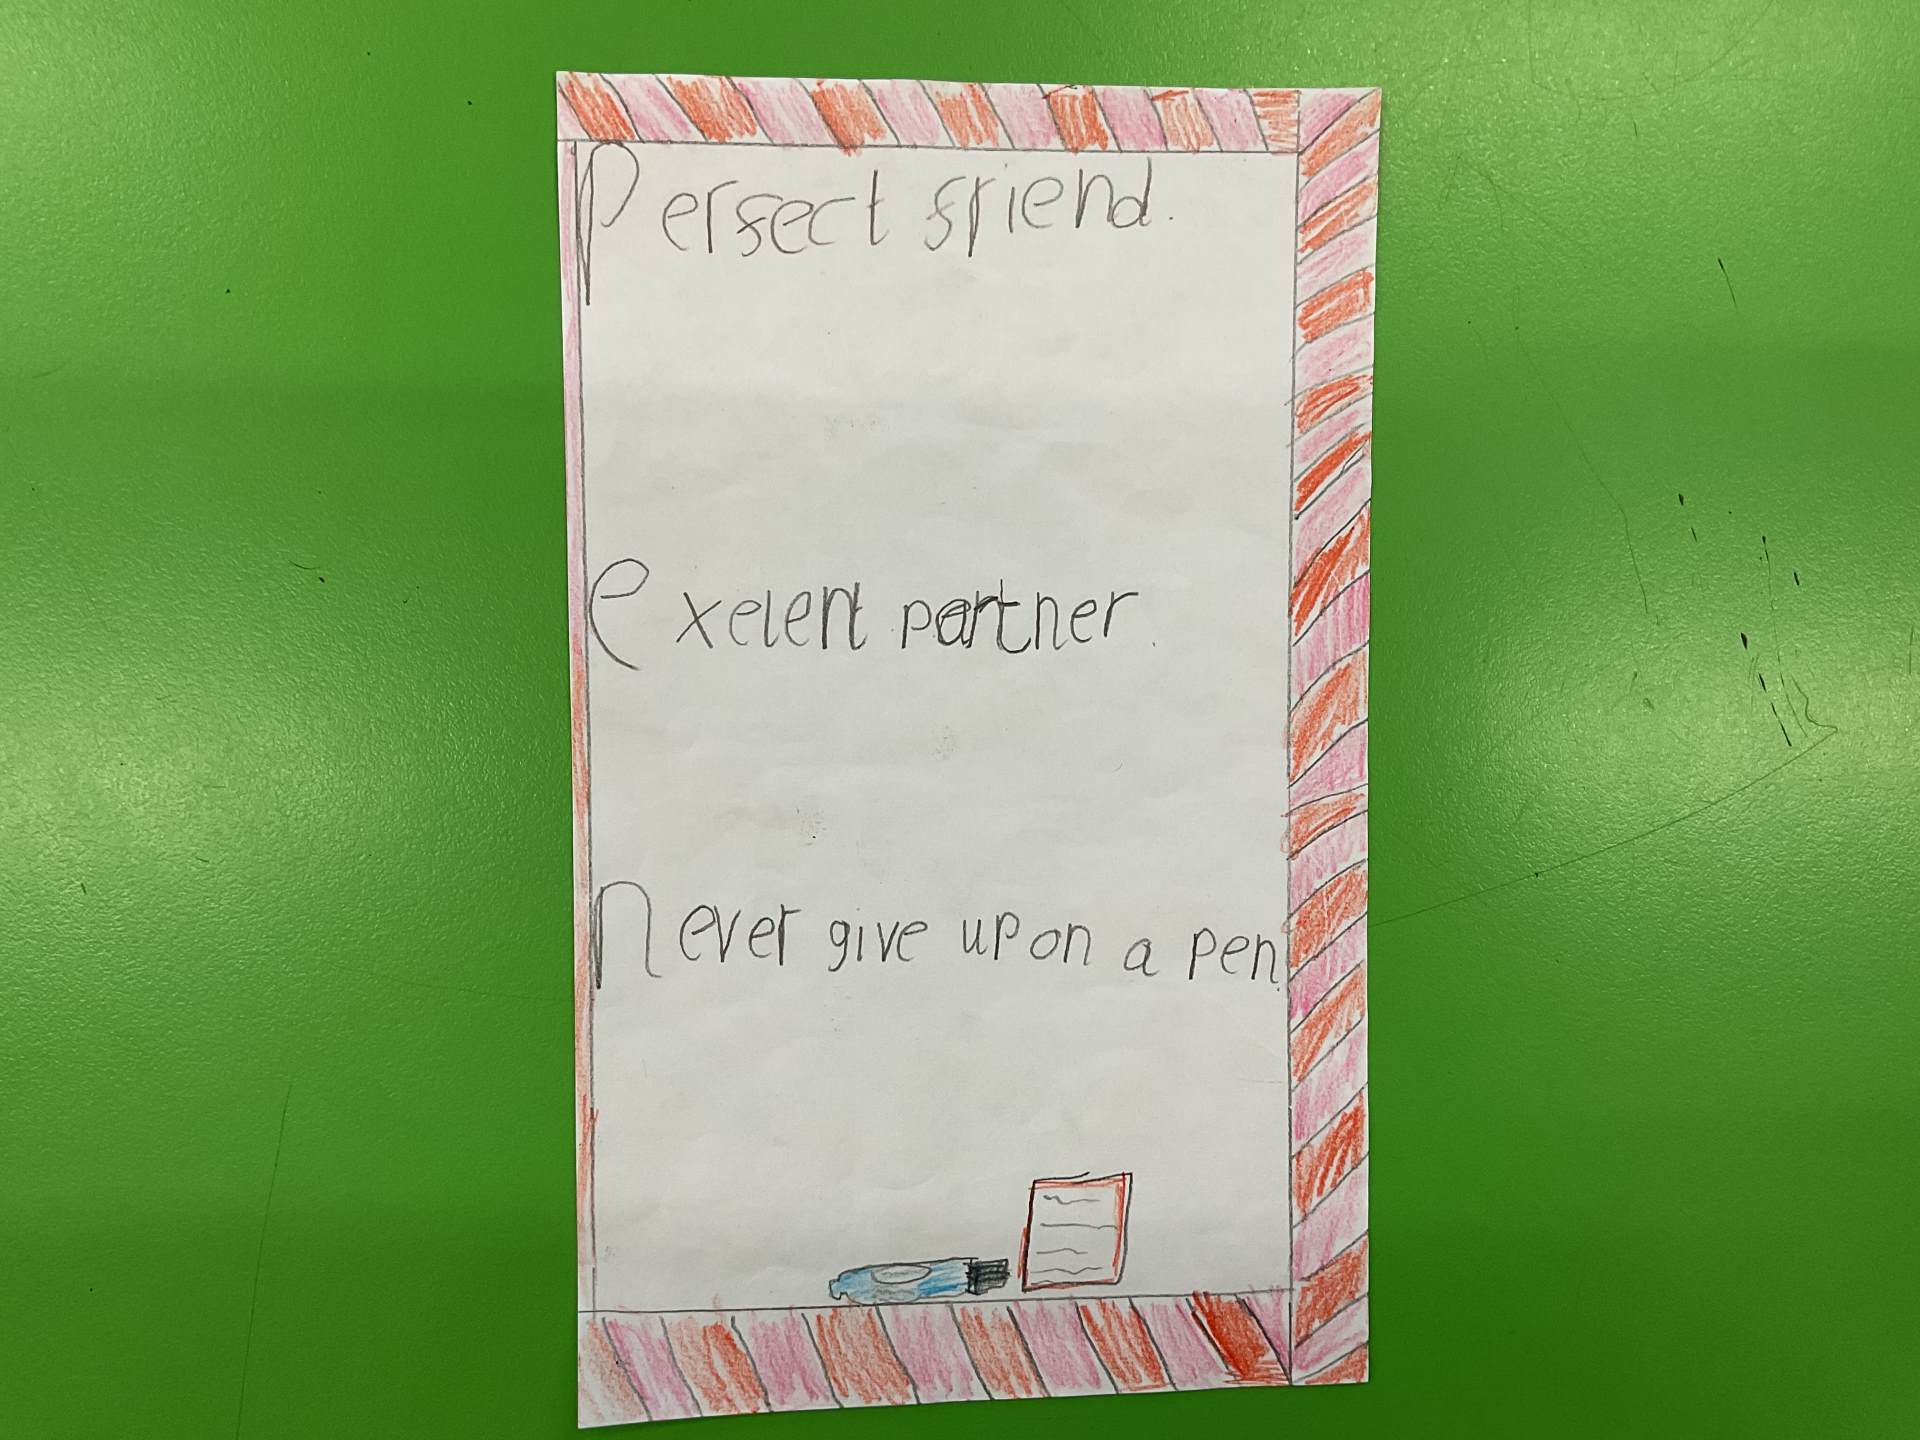 Perfect friend.
Exelent partner.
Never give up on a pen.